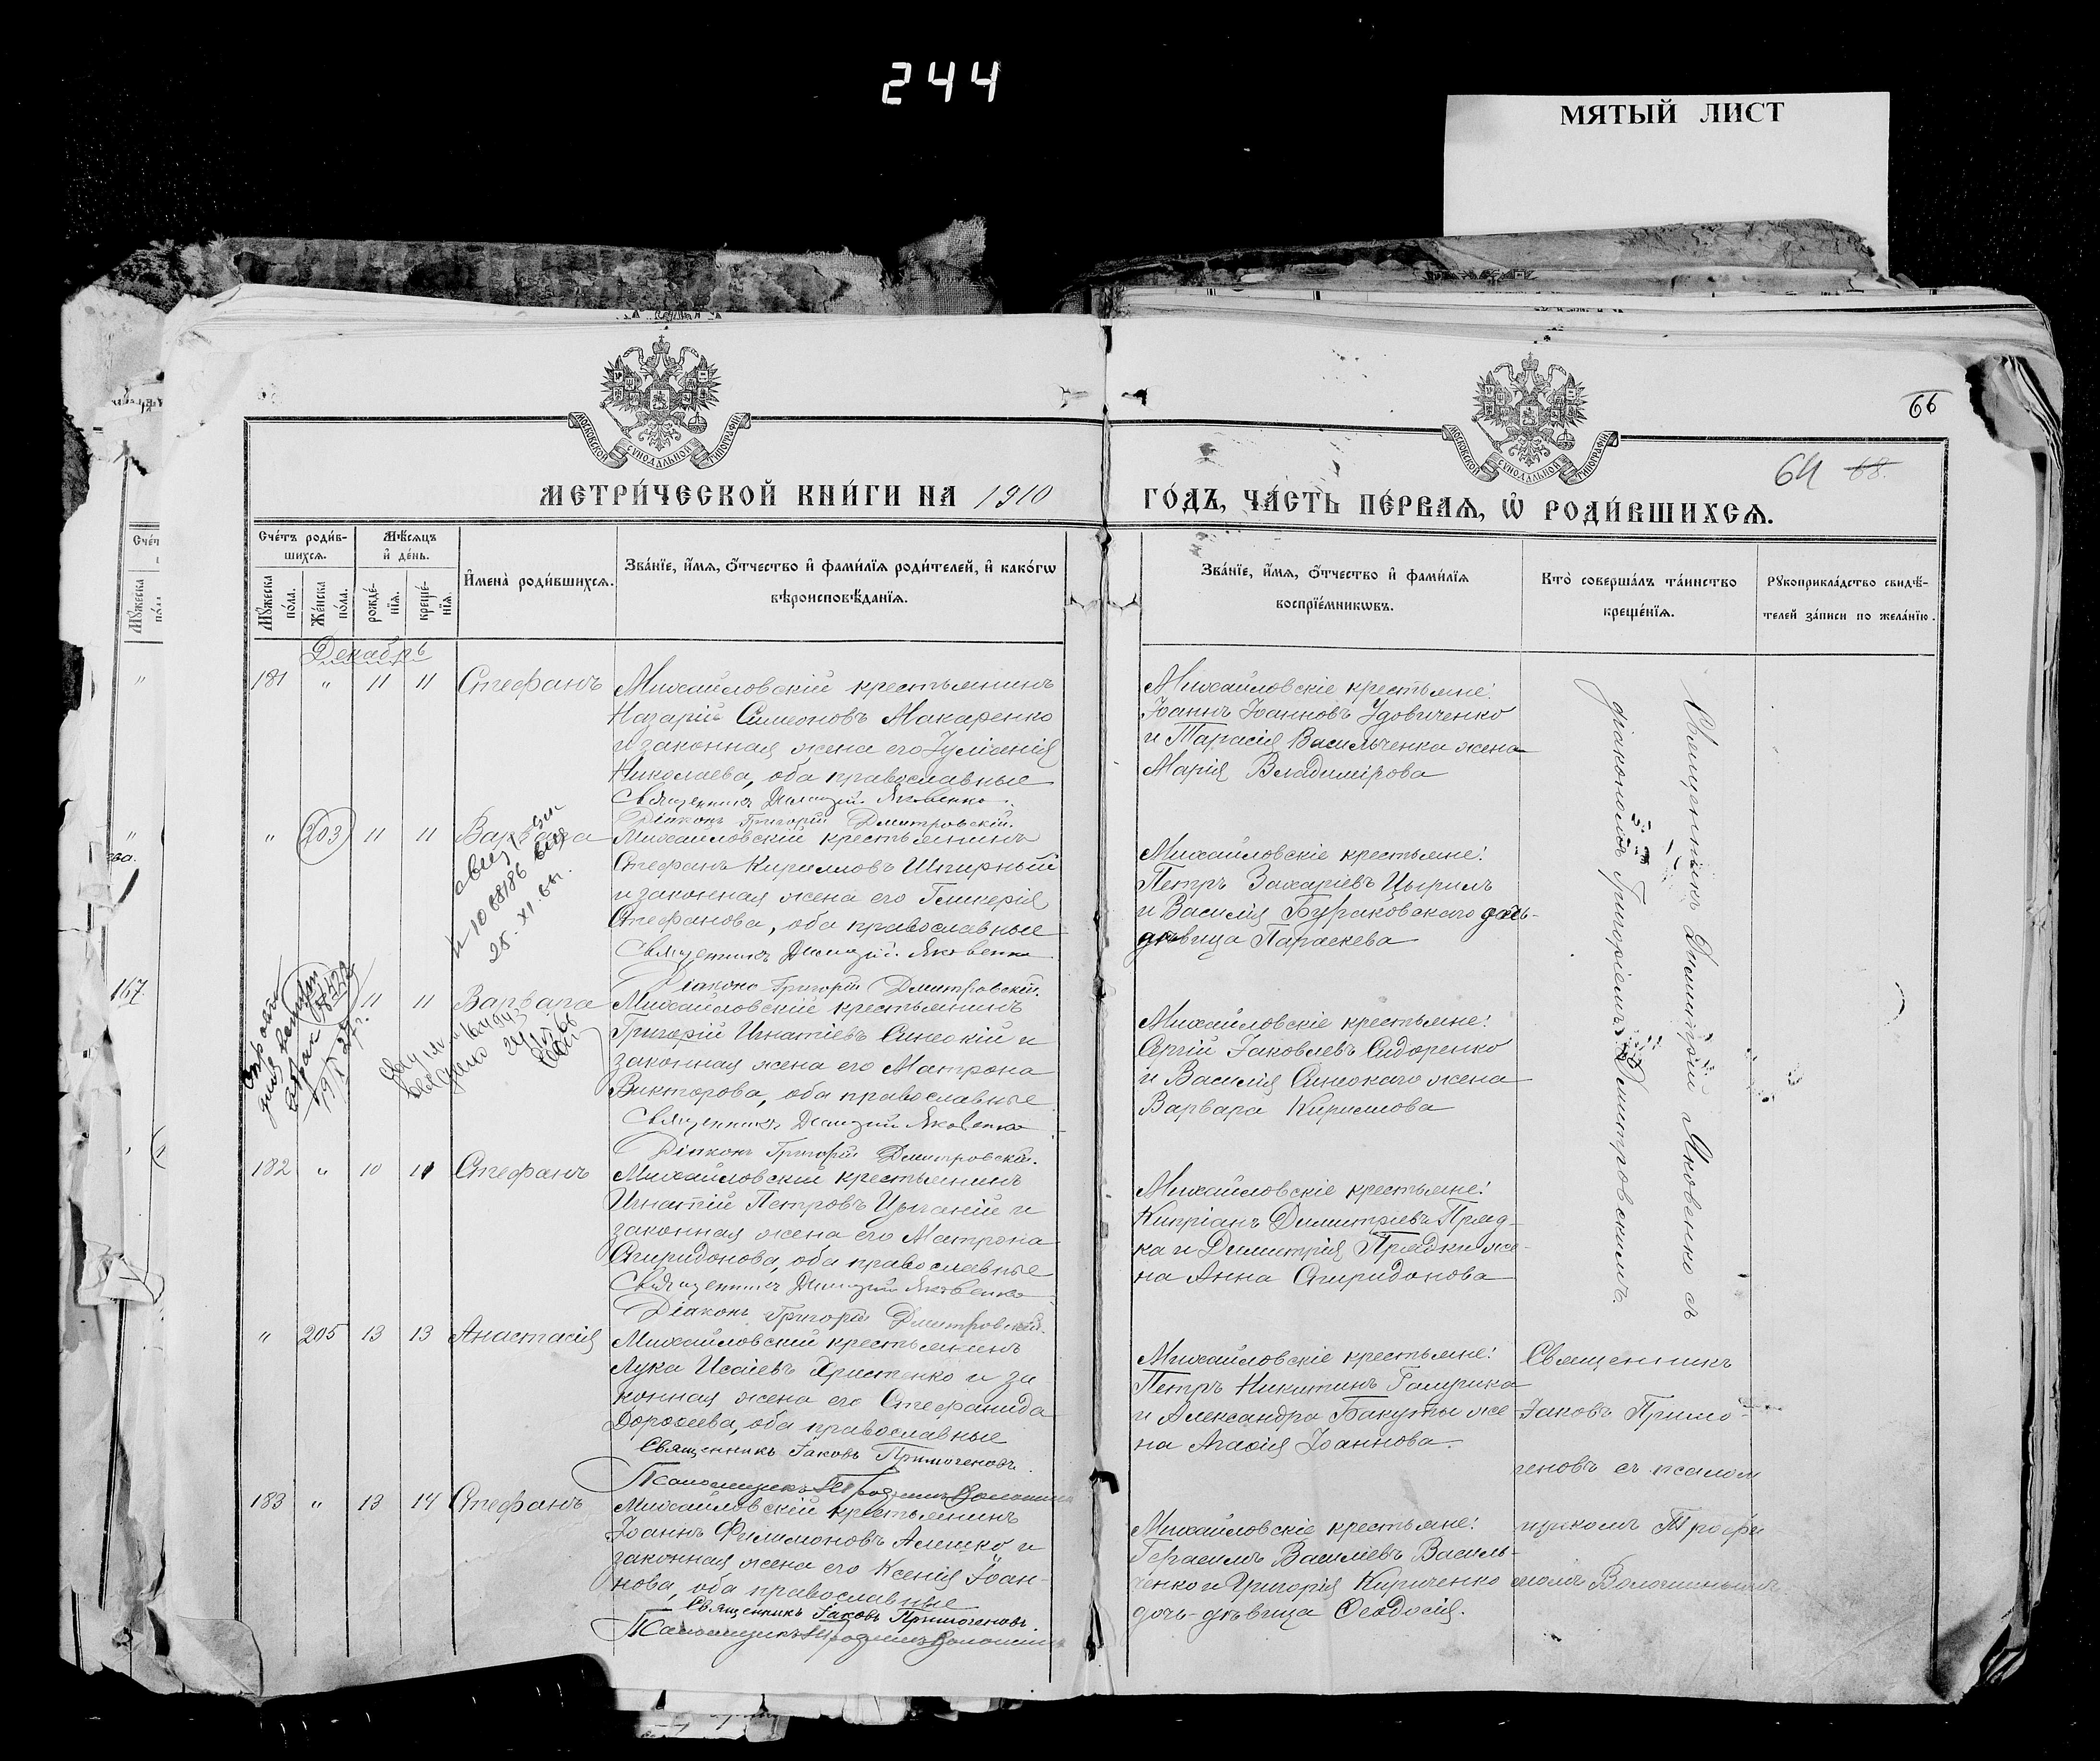 244
МЯТЫЙ ЛИСТ
МОСКОВСКОЙ СѴНОДАЛЬНОЙ ТИПОГРАФІИ
МОСКОВСКОЙ СѴНОДАЛЬНОЙ ТИПОГРАФІИ
66
64 68.
МЕТРИ́ЧЕСКОЙ КНИ́ГИ НА 1910
ГО́ДЪ, ЧА́СТЬ ПЕ́РВАѦ, Ѡ҆ РОДИ́ВШИХСѦ.
Сче́тъ роди́в-
шихсѧ.
Мѣ́сѧцъ
и҆ де́нь.
И҆мена̀ роди́вшихсѧ.
Зва́нїе, и҆́мѧ, ѻ҆́тчество и҆ фами́лїѧ роди́телей, и҆ како́гѡ
вѣроисповѣ́данїѧ.
Мꙋ́жеска
по́ла.
Же́нска
по́ла.
рожде́-
нїѧ.
креще́-
нїѧ.
Зва́нїе, и҆́мѧ, ѻ҆́тчество и҆ фами́лїѧ
воспрїе́мникѡвъ.
Кто̀ соверша́лъ та́инство
креще́нїѧ.
Рꙋкоприкла́дство свидѣ́-
телей за́писи по жела́нїю.
Декабрь
181 " 11 11 Стефанъ
Михайловскій крестьянинъ
Назарій Симеоновъ Макаренко
и законная жена его Іуліанія
Николаева, оба православные
Священникъ Димитрій Яковенко
Діаконъ Григорій Дмитровскій.
Михайловскіе крестьяне:
Іоаннъ Іоанновъ Удовиченко
и Тарасія Васильченка жена
Марія Владимірова
Священникъ Димитрій Яковенко съ
діакономъ Григоріемъ Дмитровскимъ.
" 203 11 11 Варвара
25. XI.
Михайловскій крестьянинъ
Стефанъ Кирилловъ Шпирный
и законная жена его Гликерія
Стефанова, оба православные
Священникъ Димитрій Яковенко
Діаконъ Григорій Дмитровскій.
Михайловскіе крестьяне:
Петръ Захаріевъ Цырилъ
и Василія Бураковскаго дочь-
дѣвица Параскева
11 11 Варвара
Михайловскій крестьянинъ
Григорій Игнатіевъ Синеокій и
законная жена его Матрона
Викторова, оба православные
Священникъ Димитрій Яковенко
Діаконъ Григорій Дмитровскій.
Михайловскіе крестьяне:
Сергій Іаковлевъ Сидоренко
и Василія Синеокаго жена
Варвара Кириллова
182 " 10 11 Стефанъ
Михайловскій крестьянинъ
Игнатій Петровъ Цыганій и
законная жена его Матрона
Спиридонова, оба православные
Священникъ Димитрій Яковенко
Діаконъ Григорій Дмитровскій.
Михайловскіе крестьяне:
Кипріанъ Димитріевъ Пряд-
ка и Димитрія Прядки же-
на Анна Спиридонова
" 205 13 13 Анастасія
Михайловскій крестьянинъ
Лука Исаіевъ Христенко и за
конная жена его Стефанида
Дороѳеева, оба православные
Священникъ Іаковъ Примогеновъ.
Псаломщикъ Трофимъ Волошинъ
Михайловскіе крестьяне:
Петръ Никитинъ Галушка
и Александра Бакуты же
на Агаѳія Іоаннова.
Священникъ
Іаковъ Примо-
геновъ съ псалом
щикомъ Трофи
момъ Волошинымъ
183 " 13 14 Стефанъ
Михайловскій крестьянинъ
Іоаннъ Филимоновъ Алешко и
законная жена его Ксенія Іоан-
нова, оба православные
Священникъ Іаковъ Примогеновъ.
Псаломщикъ Трофимъ Волошинъ
Михайловскіе крестьяне:
Герасимъ Василіевъ Василь-
ченко и Григорія Кириченко
дочь-дѣвица Ѳеодосія.
167.